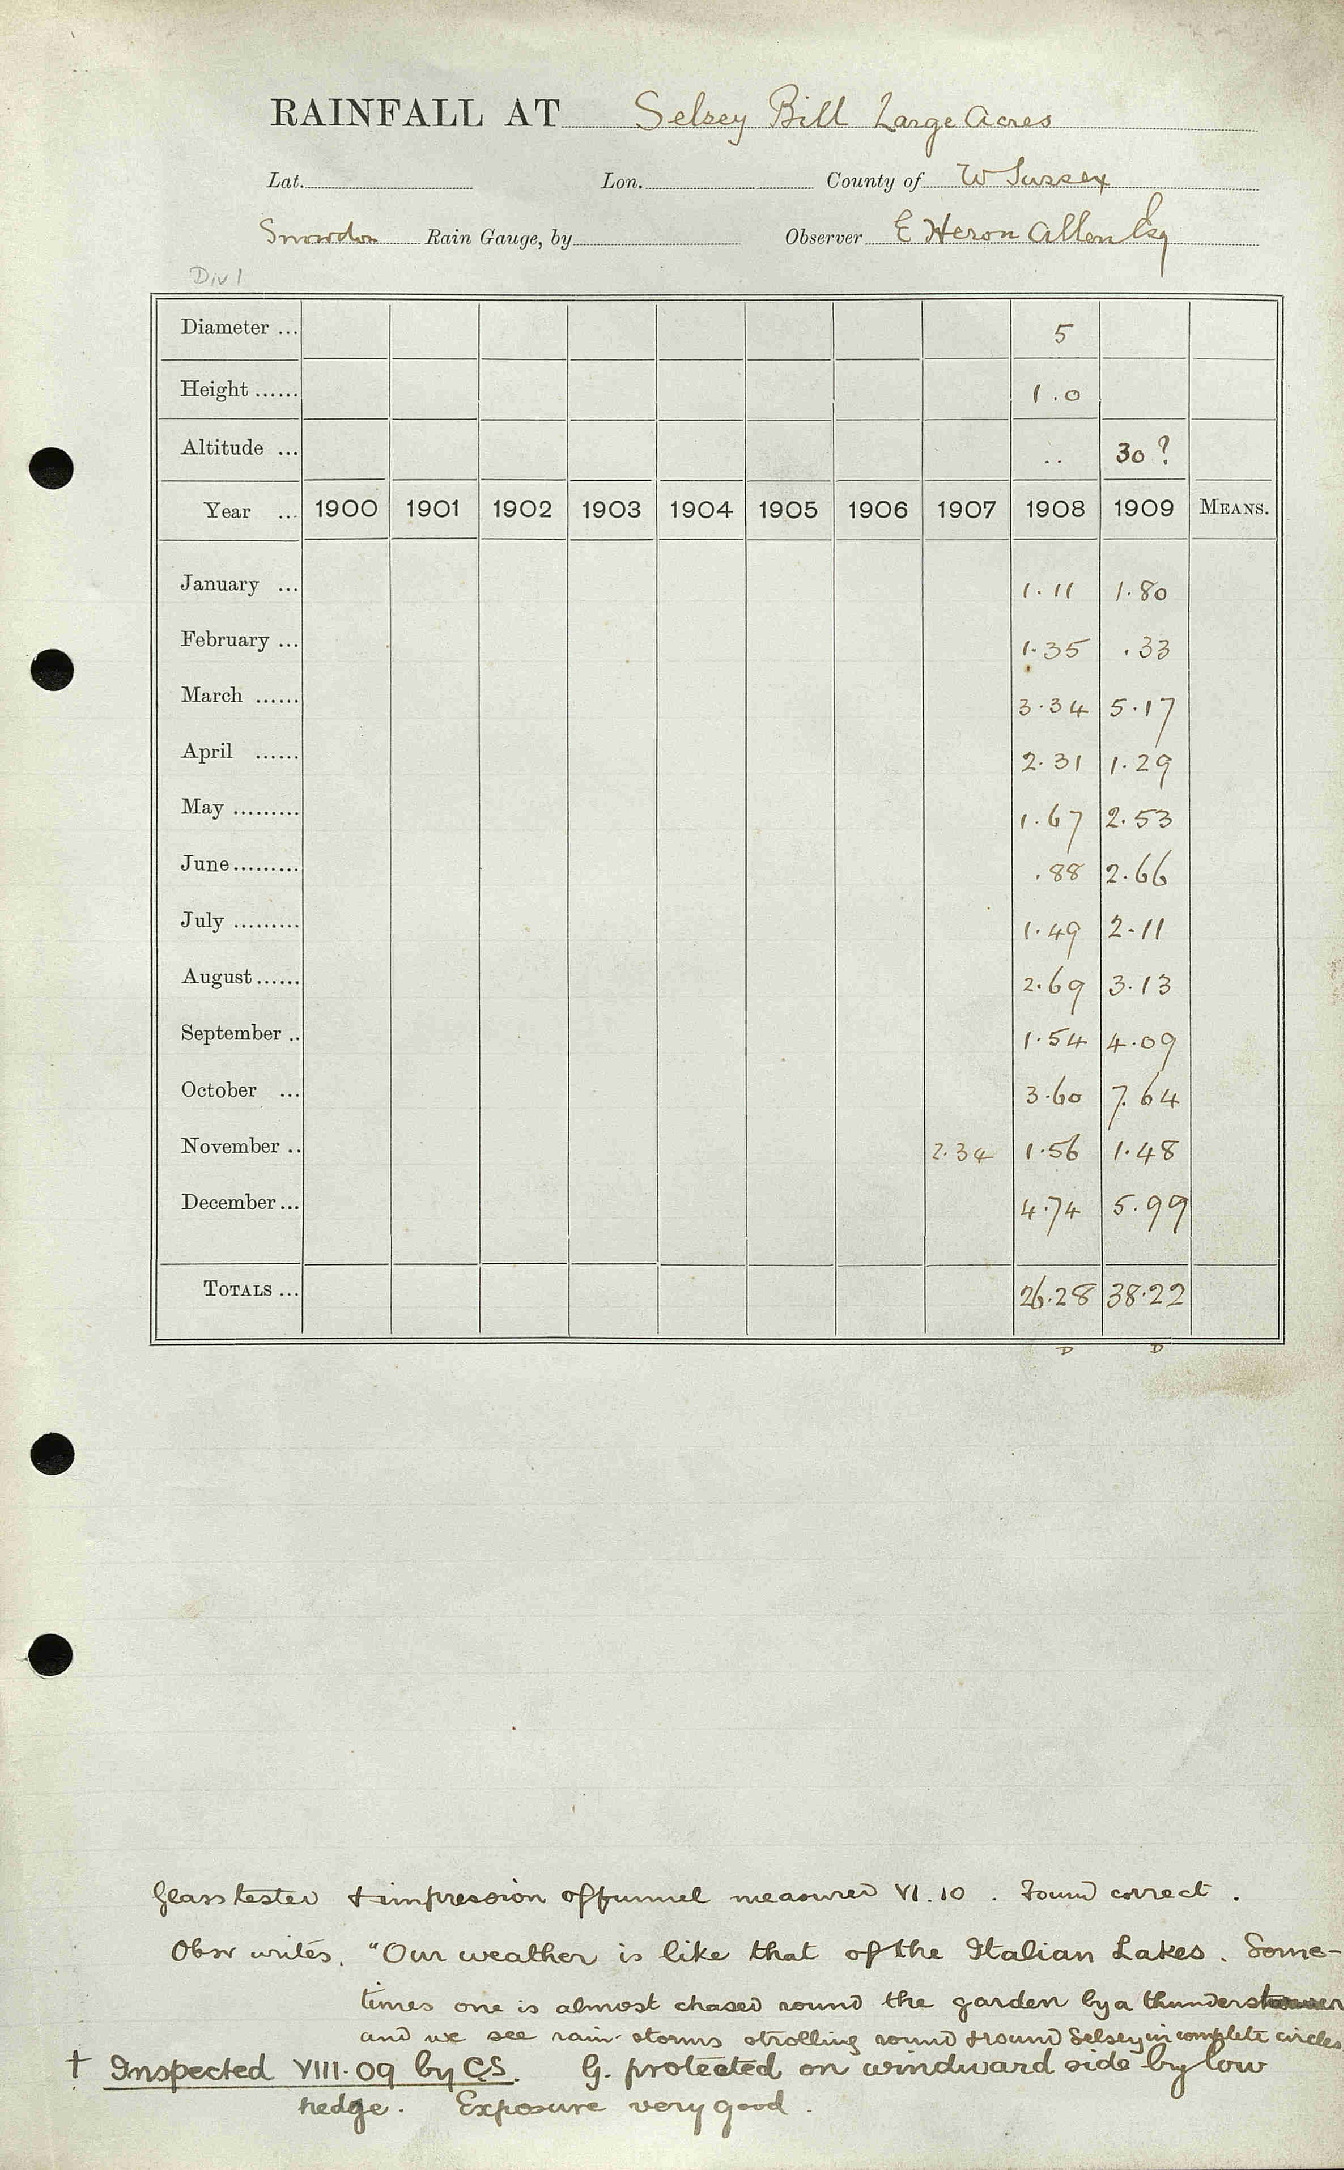 RAINFALL AT Selsey Bill Large Acres
Lat. Lon. County of W Sussex
Snowdon Rain Gauge, by Observer E Heron Allen Esq
Div 1
Diameter ... 5
Height ...... 1.0
Altitude ... .. 30 ?
Year ... 1900 1901 1902 1903 1904 1905 1906 1907 1908 1909 MEANS.
January ... 1.11 1.80
February ... 1.35 .33
March ...... 3.34 5.17
April ...... 2.31 1.29
May ......... 1.67 2.53
June ......... .88 2.66
July ......... 1.49 2.11
August ...... 2.69 3.13
September .. 1.54 4.09
October ... 3.60 7.64
November .. 2.34 1.56 1.48
December ... 4.74 5.99
TOTALS ... 26.28 38.22
D D
Glass tested & impression of funnel measured VI.10 . Found correct .
Obsr writes, "Our weather is like that of the Italian Lakes . Some-
times one is almost chased round the garden by a
and we see rain storms strolling round & round Selsey in complete circles
† Inspected VIII.09 by CS. G. protected on windward side by low
hedge . Exposure very good .